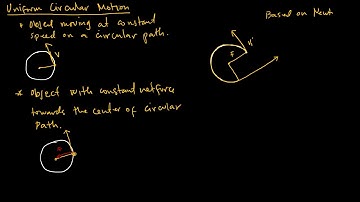 Uniform Circular Motion
* Object moving at constant
speed on a circular path.
V
* Object with constant net force
towards the center of circular
path.
Based on Newt
F
Vi